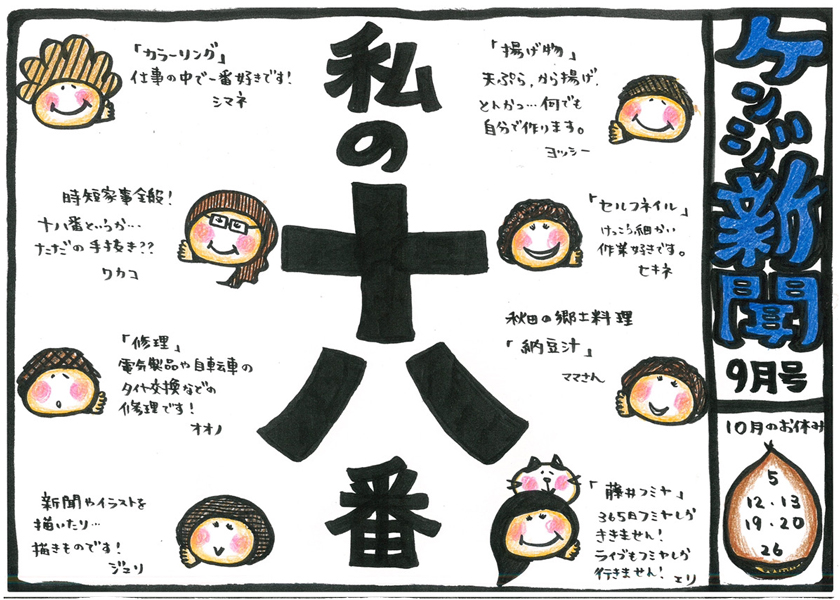 ケンジ新聞
9月号
10月のお休み
5
12.13
19.20
26
私の十八番
「揚げ物」
天ぷら,から揚げ,
とんかつ…何でも
自分で作ります。
ヨッシー
「セルフネイル」
けっこう細かい
作業好きです。
セキネ
秋田の郷土料理
「納豆汁」
ママさん
「藤井フミヤ」
365日フミヤしか
ききません!
ライブもフミヤしか
行きません!
ェリ
「カラーリング」
仕事の中で一番好きです!
シマネ
時短家事全般!
十八番というか…
ただの手抜き??
ワカコ
「修理」
電気製品や自転車の
タイヤ交換などの
修理です!
オオノ
新聞やイラストを
描いたり…
描きものです!
ジュリ